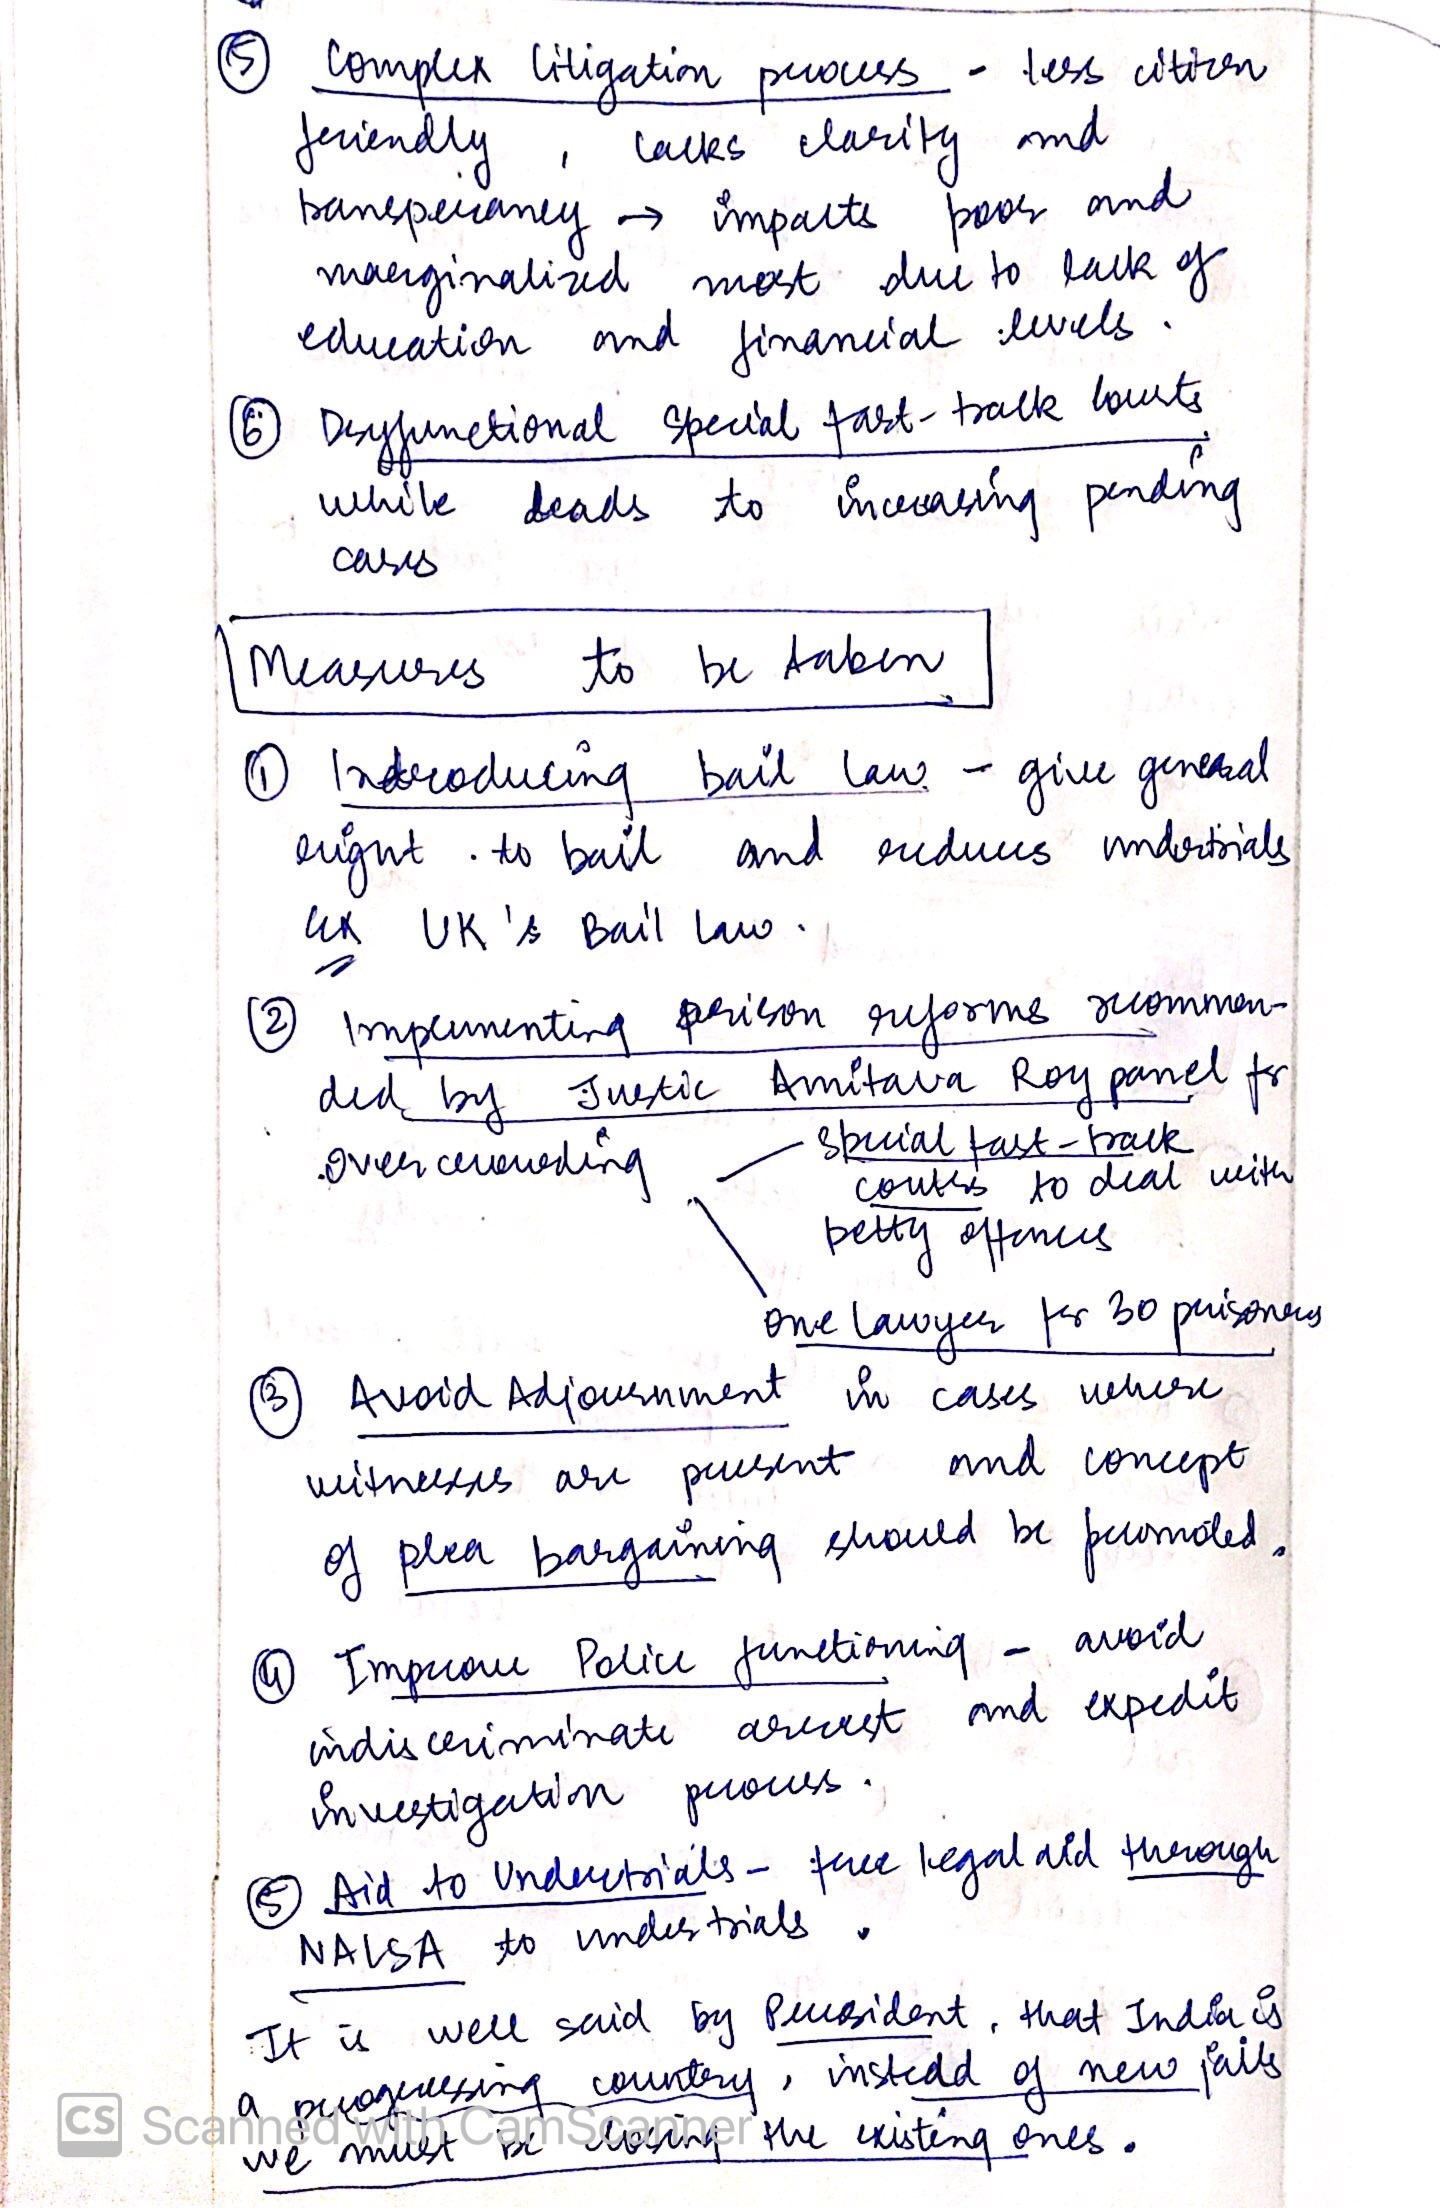 ⑤ Complex litigation process - less citizen
friendly , lacks clarity and
transperancy → impacts poor and
marginalized most due to lack of
education and financial levels .
⑥ Dysfunctional Special fast-track Courts
while leads to increasing pending
cases
Measures to be taken
① Introducing bail law - give general
right . to bail and reduces undertrials
Ex UK's Bail law .
② Implementing prison reforms recommen-
ded by Justic Amitava Roy panel for
overcrowding
special fast-track
courts to deal with
petty offences
one lawyer for 30 prisoners
③ Avoid Adjournment in cases where
witnesses are present and concept
of plea bargaining should be promoted.
④ Improve Police functioning - avoid
indiscriminate arrest and expedit
investigation process .
⑤ Aid to Undertrials - free legal aid through
NALSA to undertrials .
It is well said by President, that India is
a progressing country, instead of new jails
we must be closing the existing ones.
CS Scanned with CamScanner